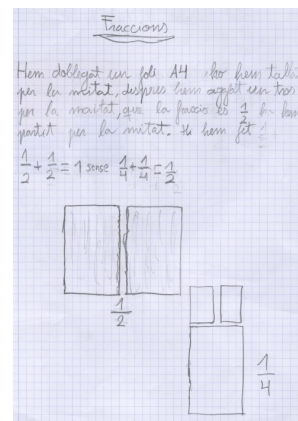 Fraccions
Hem doblegat un foli A4 i ho hem
per la meitat, despres hem agafat un tros
per la meitat, que la fraccio es 1/2 ho hem
partit per la mitat. Ho hem fet
1/2 + 1/2 = 1 sense 1/4 + 1/4 = 1/2
1/2
1/4